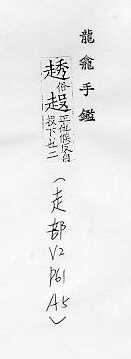 龍龕手鑑
俗 正他候反自投下
(走部 V2 P61 A5)